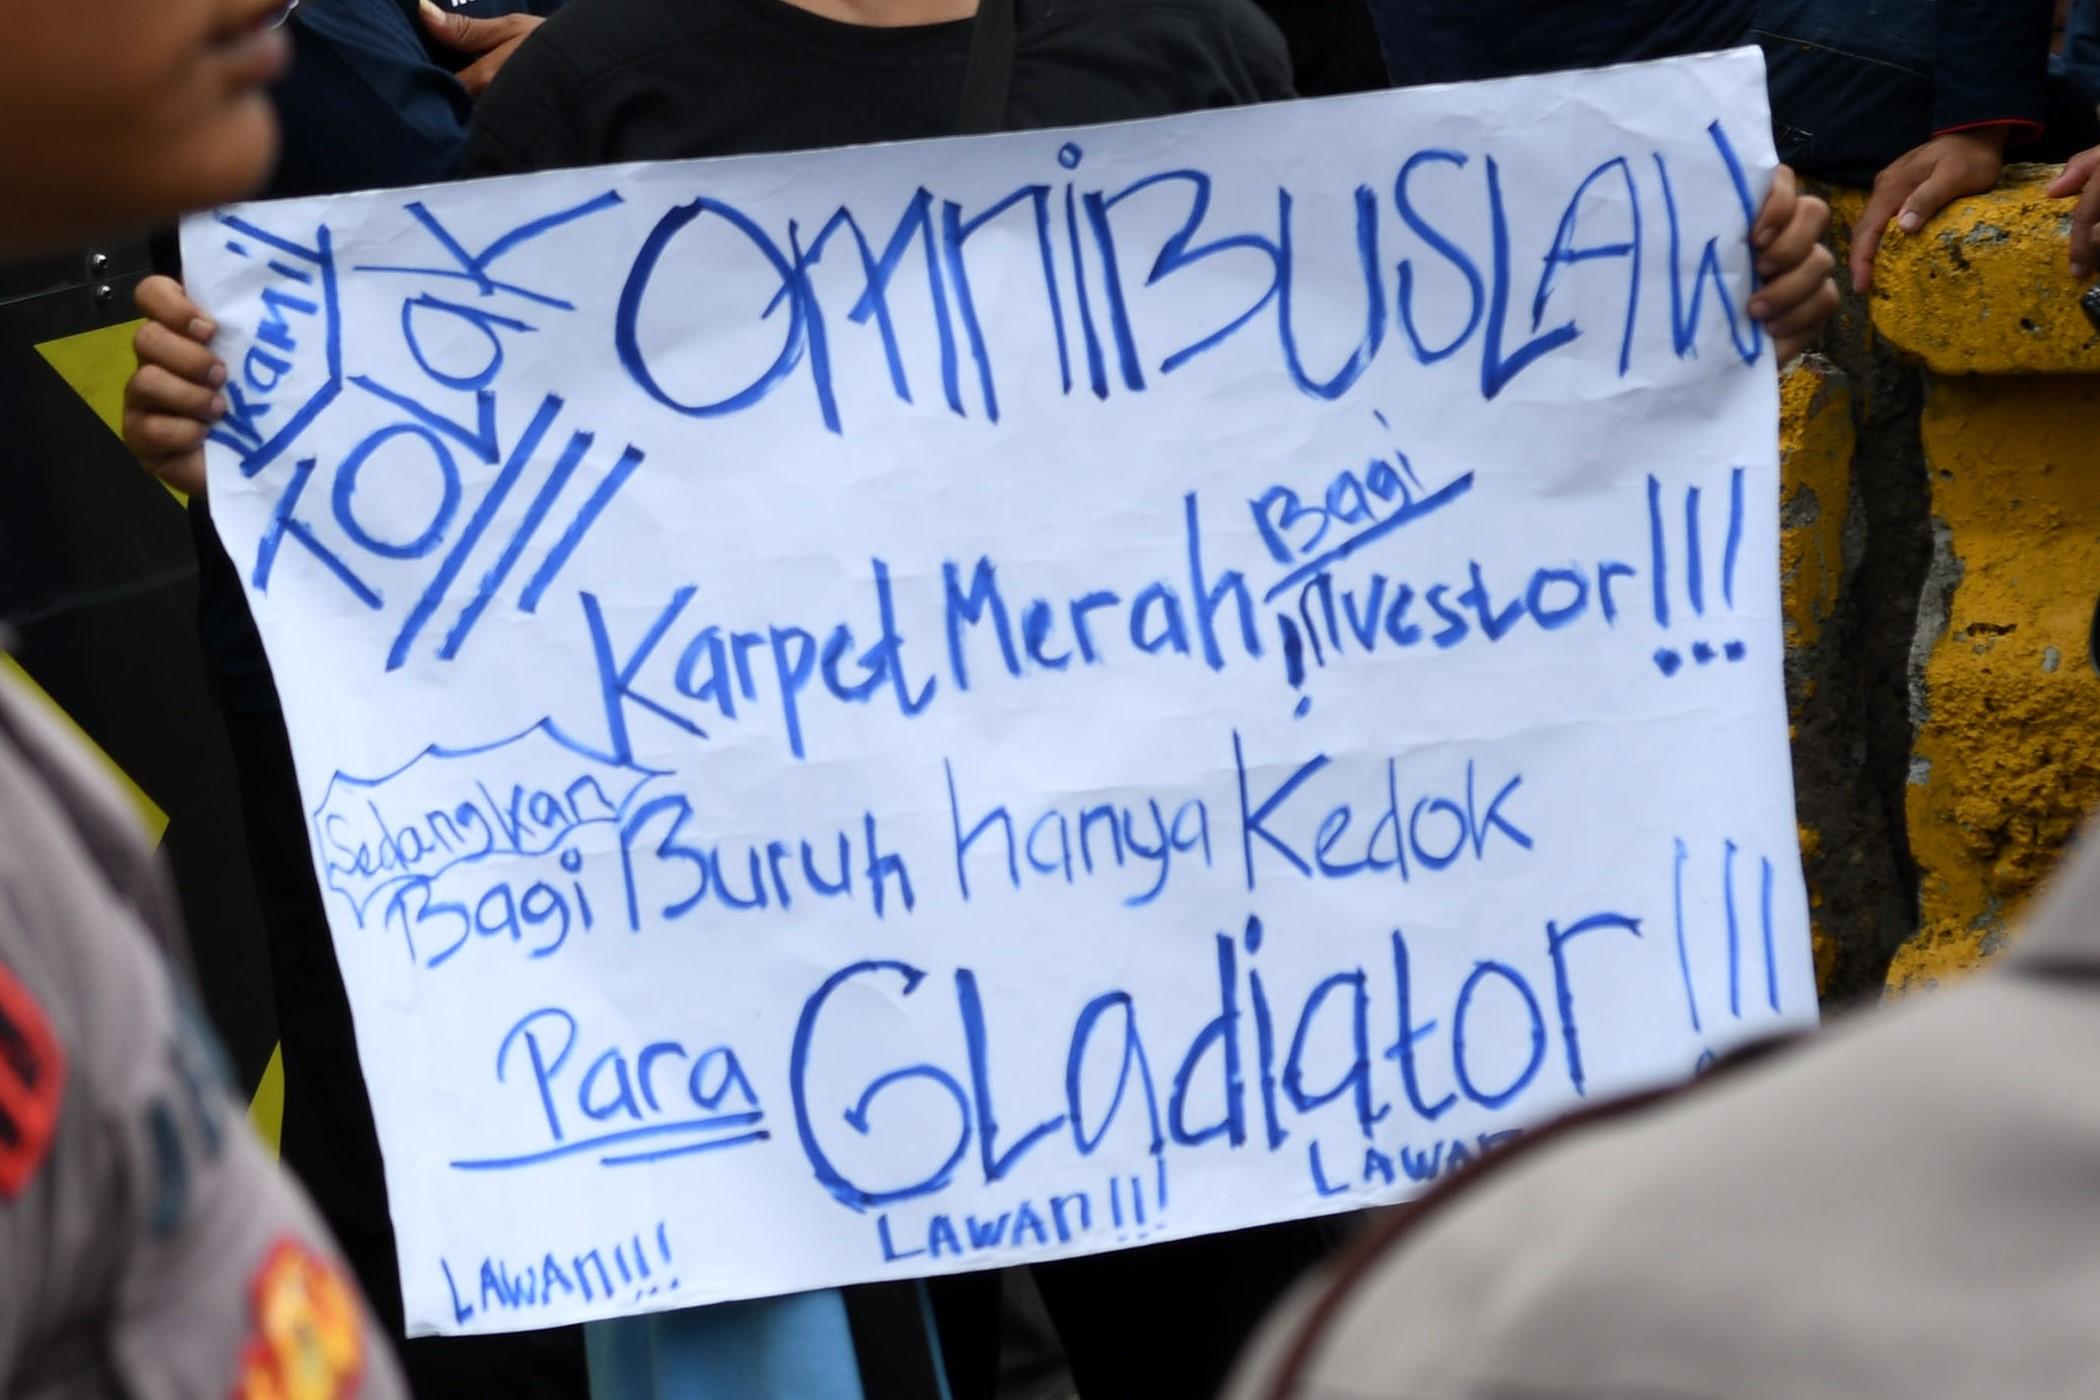 kami
TOLaK !!!
OmniBUSLAW
Karpet Merah Bagi investor!!!
Sedangkan
Bagi Buruh hanya Kedok
Para GLadiator !!!
LAWAn!!! LAWAn!!!